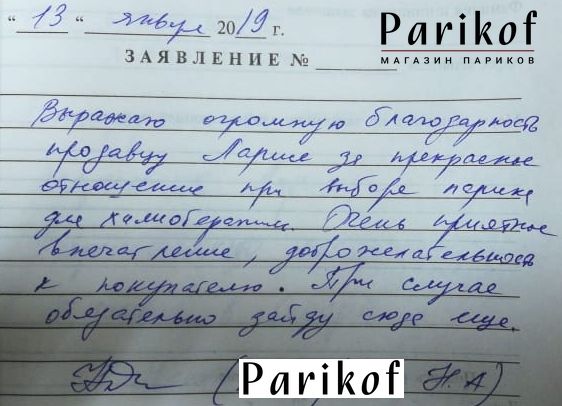 "13" января 2019 г.
Parikof
МАГАЗИН ПАРИКОВ
ЗАЯВЛЕНИЕ №
Выражаю огромную благодарность
продавцу Ларисе за прекрасное
отношение при выборе парика
для химиотерапии. Очень приятное
впечатление, доброжелательность
к покупателю. При случае
обязательно зайду сюда еще.
(Parikof Н.А)